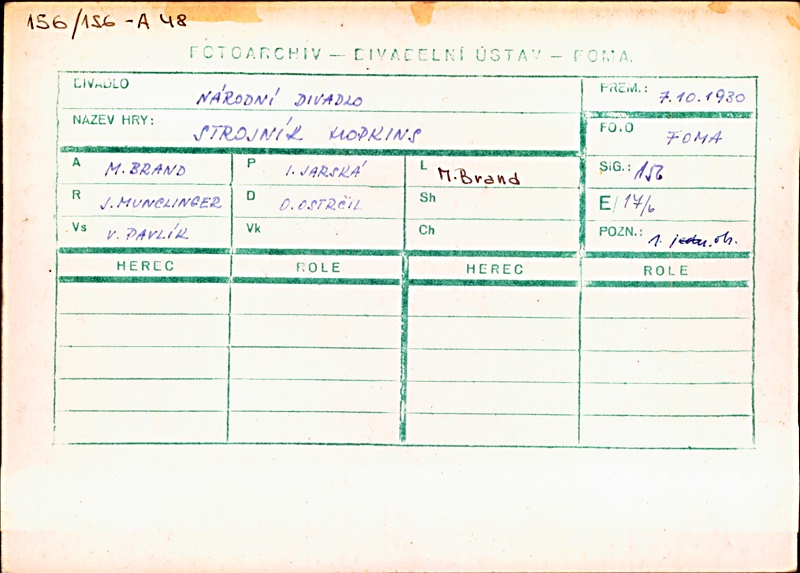 156/156 - A 48
FOTOARCHIV — DIVADELNÍ ÚSTAV — FOMA.
DIVADLO NÁRODNÍ DIVADLO PREM.: 7.10.1930
NÁZEV HRY: STROJNÍK HOPKINS FOTO FOMA
A M. BRAND P I. JARSKÁ L M. Brand SIG.: 156
R J. MUNCLINGER D O. OSTRČIL Sh E/17/6
Vs V. PAVLÍK Vk Ch POZN.: 1. jedn. ob.
HEREC ROLE HEREC ROLE